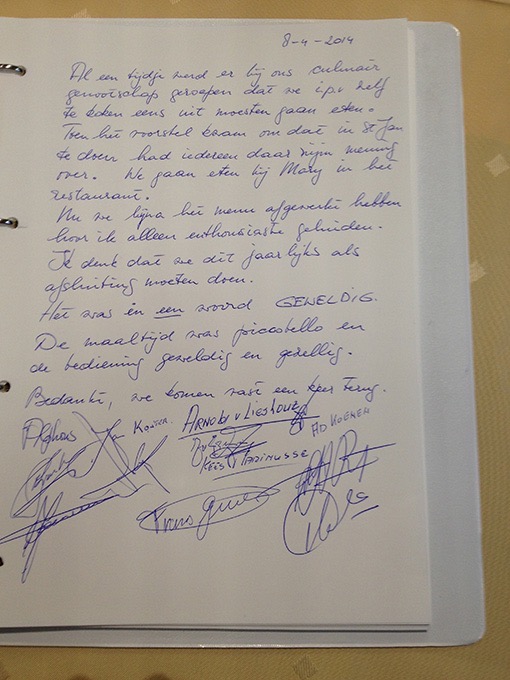 8-4-2014
Al een tijdje werd er bij ons culinair
genootschap geroepen dat we i.p.v zelf
te koken eens uit moesten gaan eten.
Toen het voorstel kwam om dat in St Jan
te doen had iedereen daar zijn mening
over. We gaan eten bij Mary in het
restaurant.
Nu we bijna het menu afgewerkt hebben
hoor ik alleen enthousiaste geluiden.
Ik denk dat we dit jaarlijks als
afsluiting moeten doen.
Het was in een woord GEWELDIG.
De maaltijd was picobello en
de bediening geweldig en gezellig.
Bedankt, we komen vast een keer terug.
Jan Koster. ARNOLD v LIESHOUT
AD KOENEN
KEES MARINUSSE
Frans